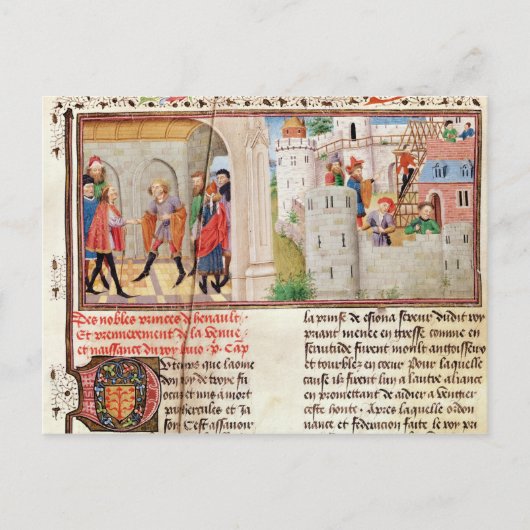 Des nobles princes de henault
Et premierement de la venue
et naissance du roy bavo . p. Cap
u temps que laome
don roy de troye fu
occis et mis a mort
par hercules et Ja
son. C'est assavoir
la prinse de esiona sereur dudit roy
priant menee en tresse comme en
servitude furent moult angoisseux
et tourblez en coeur Pour laquelle
cause ilz firent lun a lautre aliance
en promettant de aidier a venchier
ceste honte . Apres laquelle ordon
nance et federacion faite le roy pri